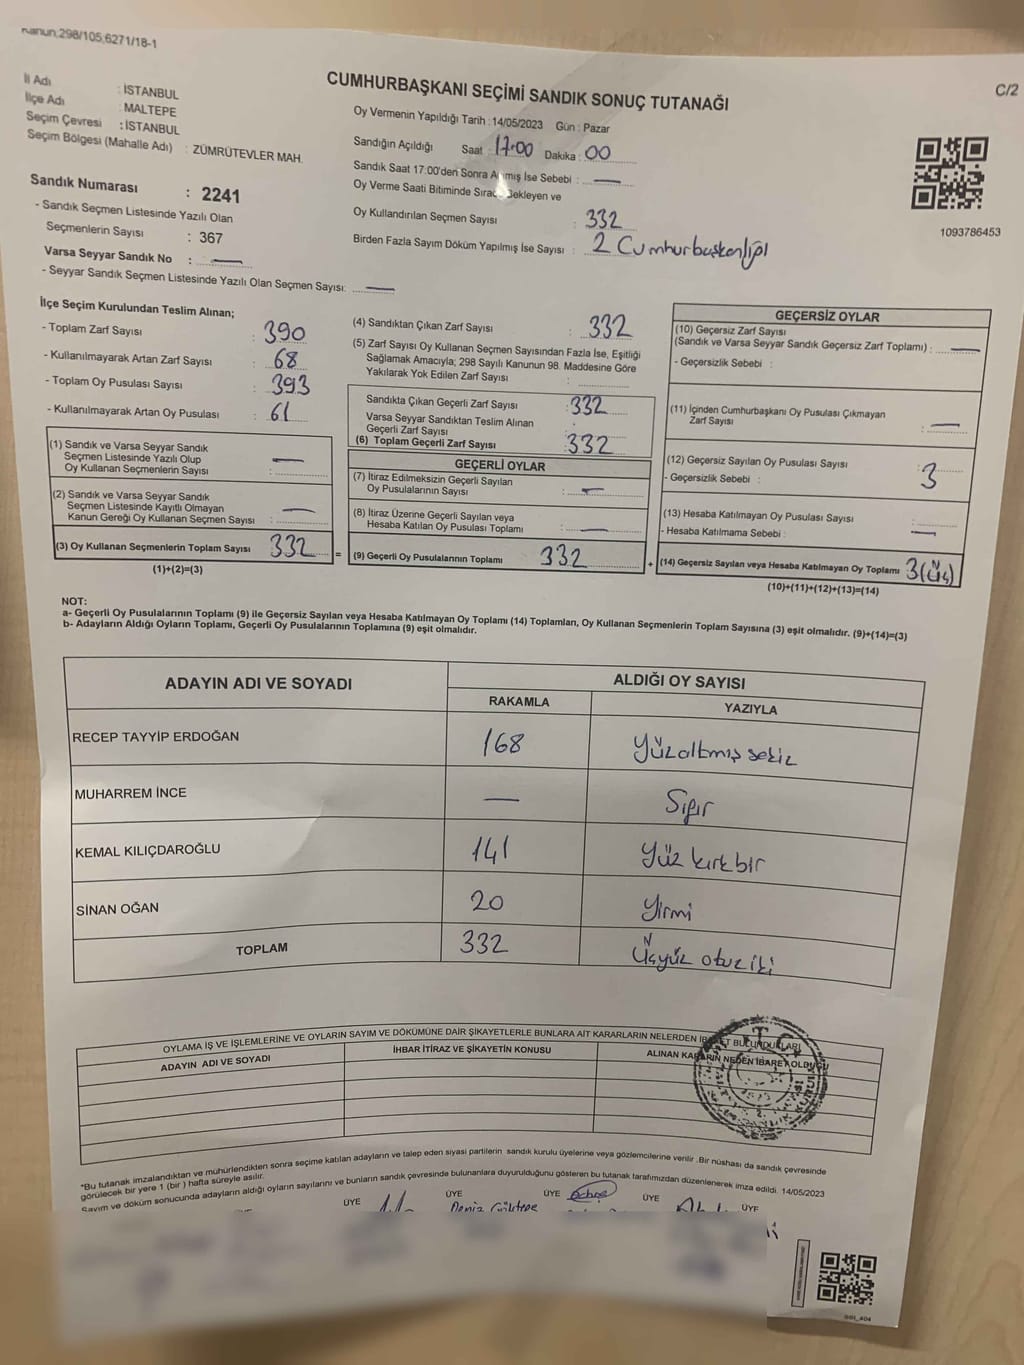 Kanun:298/105,6271/18-1
C/2
İl Adı : İSTANBUL
İlçe Adı : MALTEPE
Seçim Çevresi : İSTANBUL
Seçim Bölgesi (Mahalle Adı) : ZÜMRÜTEVLER MAH.
Sandık Numarası : 2241
- Sandık Seçmen Listesinde Yazılı Olan
Seçmenlerin Sayısı : 367
Varsa Seyyar Sandık No : —
- Seyyar Sandık Seçmen Listesinde Yazılı Olan Seçmen Sayısı: —
CUMHURBAŞKANI SEÇİMİ SANDIK SONUÇ TUTANAĞI
Oy Vermenin Yapıldığı Tarih : 14/05/2023 Gün : Pazar
Sandığın Açıldığı Saat : 17:00 Dakika : 00
Sandık Saat 17:00'den Sonra Açılmış İse Sebebi : —
Oy Verme Saati Bitiminde Sırada Bekleyen ve
Oy Kullandırılan Seçmen Sayısı : 332
Birden Fazla Sayım Döküm Yapılmış İse Sayısı : 2
1093786453
İlçe Seçim Kurulundan Teslim Alınan;
- Toplam Zarf Sayısı : 390
- Kullanılmayarak Artan Zarf Sayısı : 68
- Toplam Oy Pusulası Sayısı : 393
- Kullanılmayarak Artan Oy Pusulası : 61
(1) Sandık ve Varsa Seyyar Sandık
Seçmen Listesinde Yazılı Olup
Oy Kullanan Seçmenlerin Sayısı : —
(2) Sandık ve Varsa Seyyar Sandık
Seçmen Listesinde Kayıtlı Olmayan
Kanun Gereği Oy Kullanan Seçmen Sayısı : —
(3) Oy Kullanan Seçmenlerin Toplam Sayısı 332
(1)+(2)=(3)
=
(4) Sandıktan Çıkan Zarf Sayısı : 332
(5) Zarf Sayısı Oy Kullanan Seçmen Sayısından Fazla İse, Eşitliği
Sağlamak Amacıyla; 298 Sayılı Kanunun 98. Maddesine Göre
Yakılarak Yok Edilen Zarf Sayısı :
Sandıkta Çıkan Geçerli Zarf Sayısı : 332
Varsa Seyyar Sandıktan Teslim Alınan
Geçerli Zarf Sayısı :
(6) Toplam Geçerli Zarf Sayısı 332
GEÇERLİ OYLAR
(7) İtiraz Edilmeksizin Geçerli Sayılan
Oy Pusulalarının Sayısı : —
(8) İtiraz Üzerine Geçerli Sayılan veya
Hesaba Katılan Oy Pusulası Toplamı : —
(9) Geçerli Oy Pusulalarının Toplamı 332
+
GEÇERSİZ OYLAR
(10) Geçersiz Zarf Sayısı
(Sandık ve Varsa Seyyar Sandık Geçersiz Zarf Toplamı) : —
- Geçersizlik Sebebi :
(11) İçinden Cumhurbaşkanı Oy Pusulası Çıkmayan
Zarf Sayısı : —
(12) Geçersiz Sayılan Oy Pusulası Sayısı : 3
- Geçersizlik Sebebi :
(13) Hesaba Katılmayan Oy Pusulası Sayısı :
- Hesaba Katılmama Sebebi : —
(14) Geçersiz Sayılan veya Hesaba Katılmayan Oy Toplamı 3(Üç)
(10)+(11)+(12)+(13)=(14)
NOT:
a- Geçerli Oy Pusulalarının Toplamı (9) ile Geçersiz Sayılan veya Hesaba Katılmayan Oy Toplamı (14) Toplamları, Oy Kullanan Seçmenlerin Toplam Sayısına (3) eşit olmalıdır. (9)+(14)=(3)
b- Adayların Aldığı Oyların Toplamı, Geçerli Oy Pusulalarının Toplamına (9) eşit olmalıdır.
ADAYIN ADI VE SOYADI ALDIĞI OY SAYISI
RAKAMLA YAZIYLA
RECEP TAYYİP ERDOĞAN 168 Yüzaltmış sekiz
MUHARREM İNCE — Sıfır
KEMAL KILIÇDAROĞLU 141 Yüz kırk bir
SİNAN OĞAN 20 Yirmi
TOPLAM 332 Üçyüz otuz iki
OYLAMA İŞ VE İŞLEMLERİNE VE OYLARIN SAYIM VE DÖKÜMÜNE DAİR ŞİKAYETLERLE BUNLARA AİT KARARLARIN NELERDEN İBARET BULUNDUKLARI
ADAYIN ADI VE SOYADI İHBAR İTİRAZ VE ŞİKAYETİN KONUSU ALINAN KARARIN NEDEN İBARET OLDUĞU
*Bu tutanak imzalandıktan ve mühürlendikten sonra seçime katılan adayların ve talep eden siyasi partilerin sandık kurulu üyelerine veya gözlemcilerine verilir. Bir nüshası da sandık çevresinde
görülecek bir yere 1 (bir) hafta süreyle asılır.
Sayım ve döküm sonucunda adayların aldığı oyların sayılarını ve bunların sandık çevresinde bulunanlara duyurulduğunu gösteren bu tutanak tarafımızdan düzenlenerek imza edildi. 14/05/2023
ÜYE ÜYE ÜYE ÜYE ÜYE
Deniz